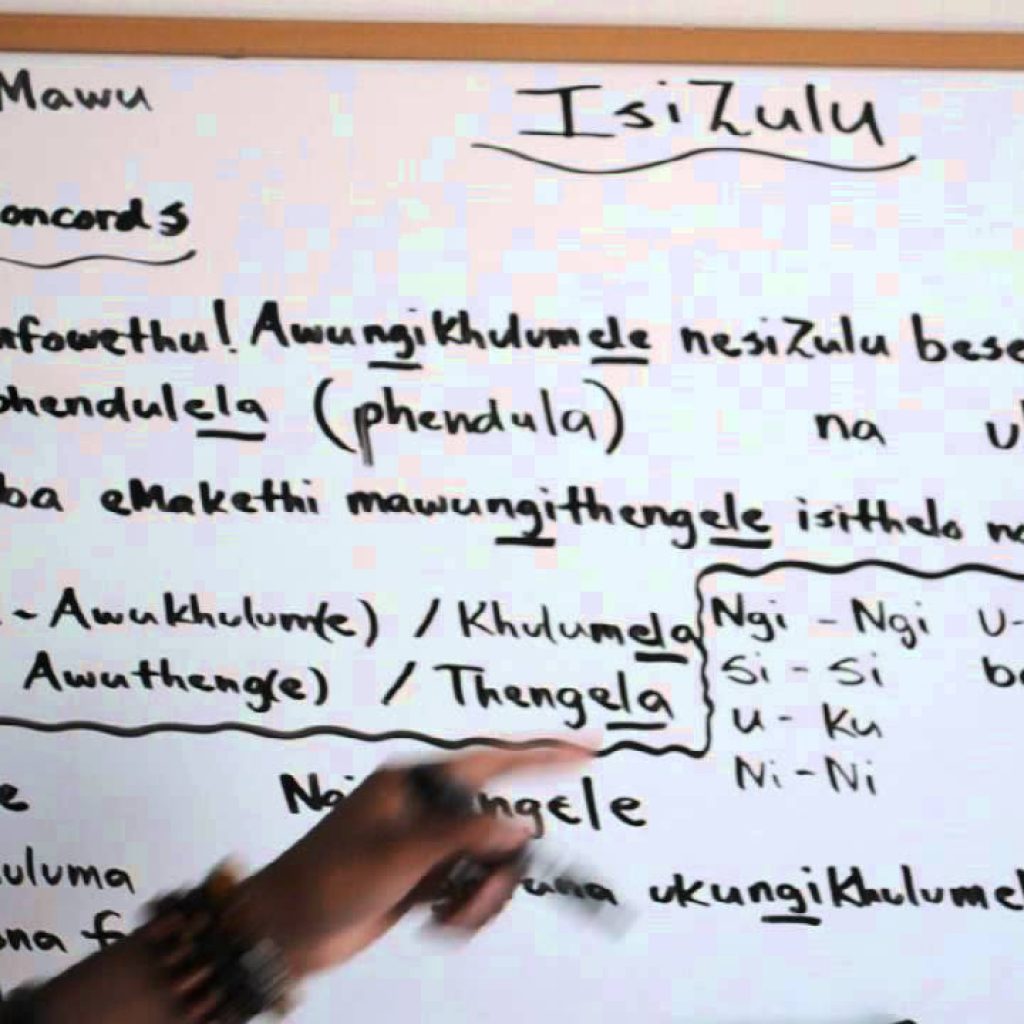 Mawu
IsiZulu
oncords
afowethu! AwungiKhulumele nesiZulu bese
phendulela (phendula) na
ba eMakethi mawungithengele isithelo
- Awukhulum(e) / Khulumela
Awutheng(e) / Thengela
Ngi - Ngi U-
Si - Si
U - Ku
Ni - Ni
ngele
uluma ukungikhulumel